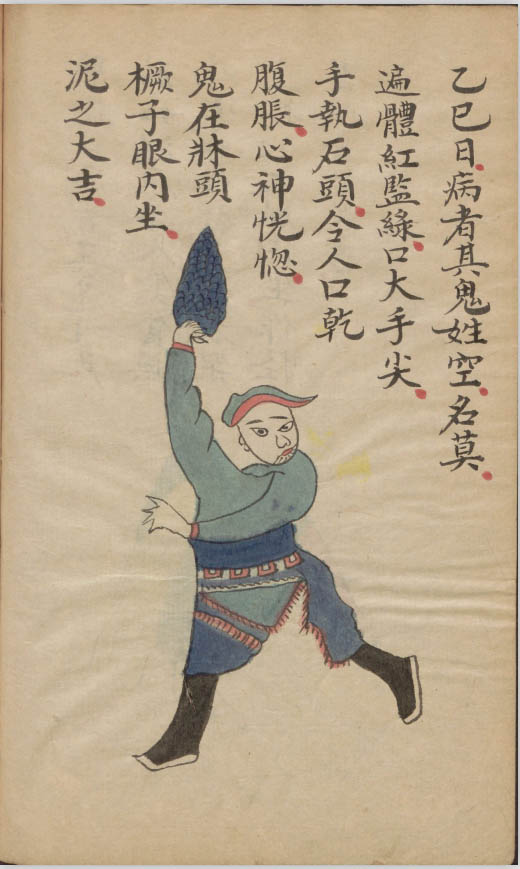 乙巳日病者其鬼姓空名莫
遍體紅監綠口大手尖
手執石頭令人口乾
腹脹心神恍惚
鬼在牀頭
橛子眼內坐
泥之大吉